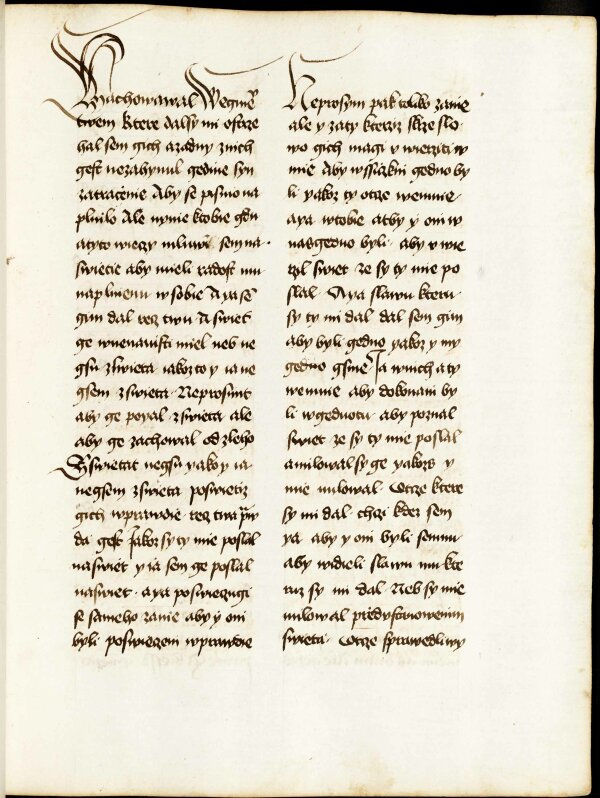 zachowawal We gmē
twem Ktere dalsy mi ostrze
hal sem gich azadny znich
gest nezahynul gedine syn
zatracenie Aby se pismo na
plnilo Ale nynie ktobie gdu
atyto wieczy mluwi sem na
swietie aby mieli radost mu
naplnenu wsobie A yasē
gim dal rzecz twu A swiet
ge wnenawisti miel neb ne
gsu zswieta iakozto y ia ne
gsem zswieta Neprosimt
aby ge poyal zswieta ale
aby ge zachowal od zleho
Sswietat negsu yako y ia
negsem zswieta poswietiz
gich wprawdie rzecz twa praw
da gest Jakoz sy ty mie poslal
naswiet y ia sem ge poslal
naswiet aya poswieczugi
se sameho zanie aby y oni
byli poswieczeni wprawdie
Neprosym pak toliko zanie
ale y zaty kteriz skrze slo
wo gich magi v wierziti w
mie Aby wssiczkni gedno by
li yakoz ty otcze wemnie
aya wtobie at by y oni w
nas gedno byli aby v wie
rzyl swiet ze sy ty mie po
slal Aya slawu kteru
sy ty mi dal dal sem gim
aby byli gedno yakoz y my
gedno gsme Ja wnich a ty
wemnie aby dokonani by
li wgednotu aby poznal
swiet ze sy ty mie poslal
amilowal sy ge yakozs y
mie milowal Otcze ktere
sy mi dal chczi kdez sem
ya aby y oni byli semnu
aby widieli slawu mu kte
ruz sy mi dal Neb sy mie
milowal przedustanowenim
swieta Otcze sprawedliwy